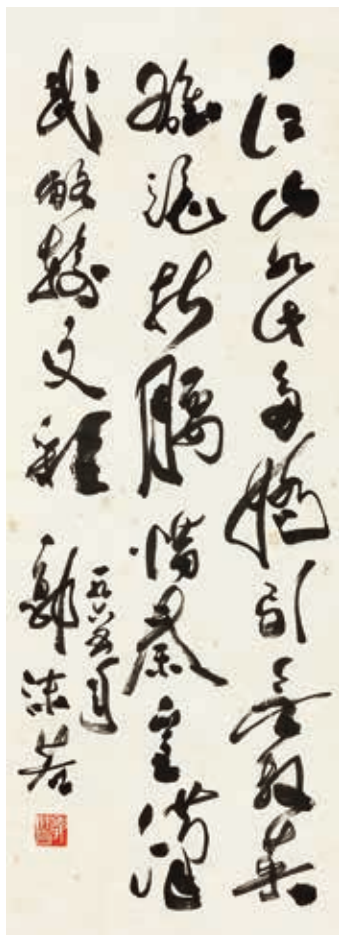 江山如此多嬌引無數英
雄競折腰惜秦皇漢
武略輸文彩
一九六五年
郭沫若